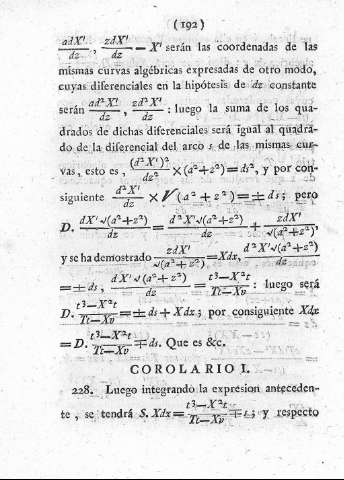 (192)
adX'/dz, zdX'/dz — X' serán las coordenadas de las
mismas curvas algébricas expresadas de otro modo,
cuyas diferenciales en la hipótesis de dz constante
serán ad²X'/dz, zd²X'/dz : luego la suma de los qua-
drados de dichas diferenciales será igual al quadra-
do de la diferencial del arco s de las mismas cur-
vas, esto es, (d²X')²/dz² ×(a²+z²)=ds², y por con-
siguiente d²X'/dz × √(a²+z²)=±ds; pero
D. dX'√(a²+z²)/dz = d²X'√(a²+z²)/dz + zdX'/√(a²+z²),
y se ha demostrado zdX'/√(a²+z²)=Xdx, d²X'√(a²+z²)/dz
=±ds, dX'√(a²+z²)/dz = t³—X²t/Tt—Xv : luego será
D. t³—X²t/Tt—Xv = ±ds+Xdx; por consiguiente Xdx
=D. t³—X²t/Tt—Xv ∓ds. Que es &c.
COROLARIO I.
228. Luego integrando la expresion anteceden-
te, se tendrá S. Xdx= t³—X²t/Tt—Xv ∓s; y respecto